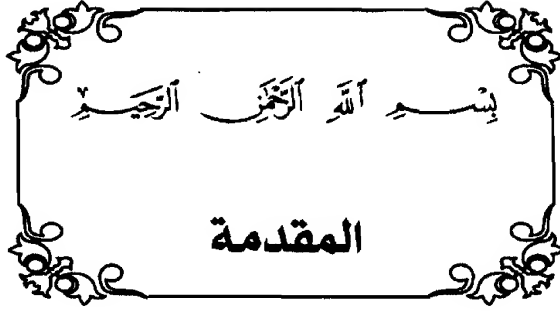 بِسْمِ ٱللَّهِ ٱلرَّحْمَٰنِ ٱلرَّحِيمِ
المقدمة